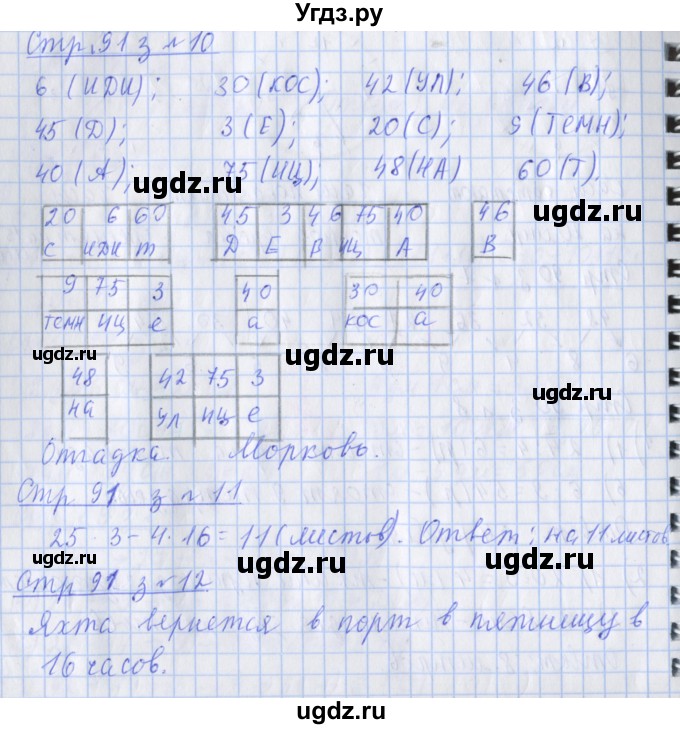 Угдз.ру
Стр. 91 з №10
6 (ИДИ); 30 (КОС); 42 (УЛ); 46 (В);
45 (Д); 3 (Е); 20 (С); 9 (ТЕМН);
40 (А); 75 (ИЦ); 48 (НА) 60 (Т).
ugdz.ru ugdz.ru
20 6 60 45 3 46 75 40 46
С ИДИ Т Д Е В ИЦ А В
9 75 3 40 30 40
темн иц е а кос а
ugdz.ru ugdz.ru ugdz.ru
48 42 75 3
на ул иц е
ugdz.ru
Отгадка. Морковь.
Стр 91 з №11
25 · 3 – 4 · 16 = 11 (листов). Ответ: на 11 листов
ugdz.ru ugdz.ru ugdz.ru
Стр 91 з №12
Яхта вернется в порт в пятницу в
16 часов.
ugdz.ru ugdz.ru
ugdz.ru